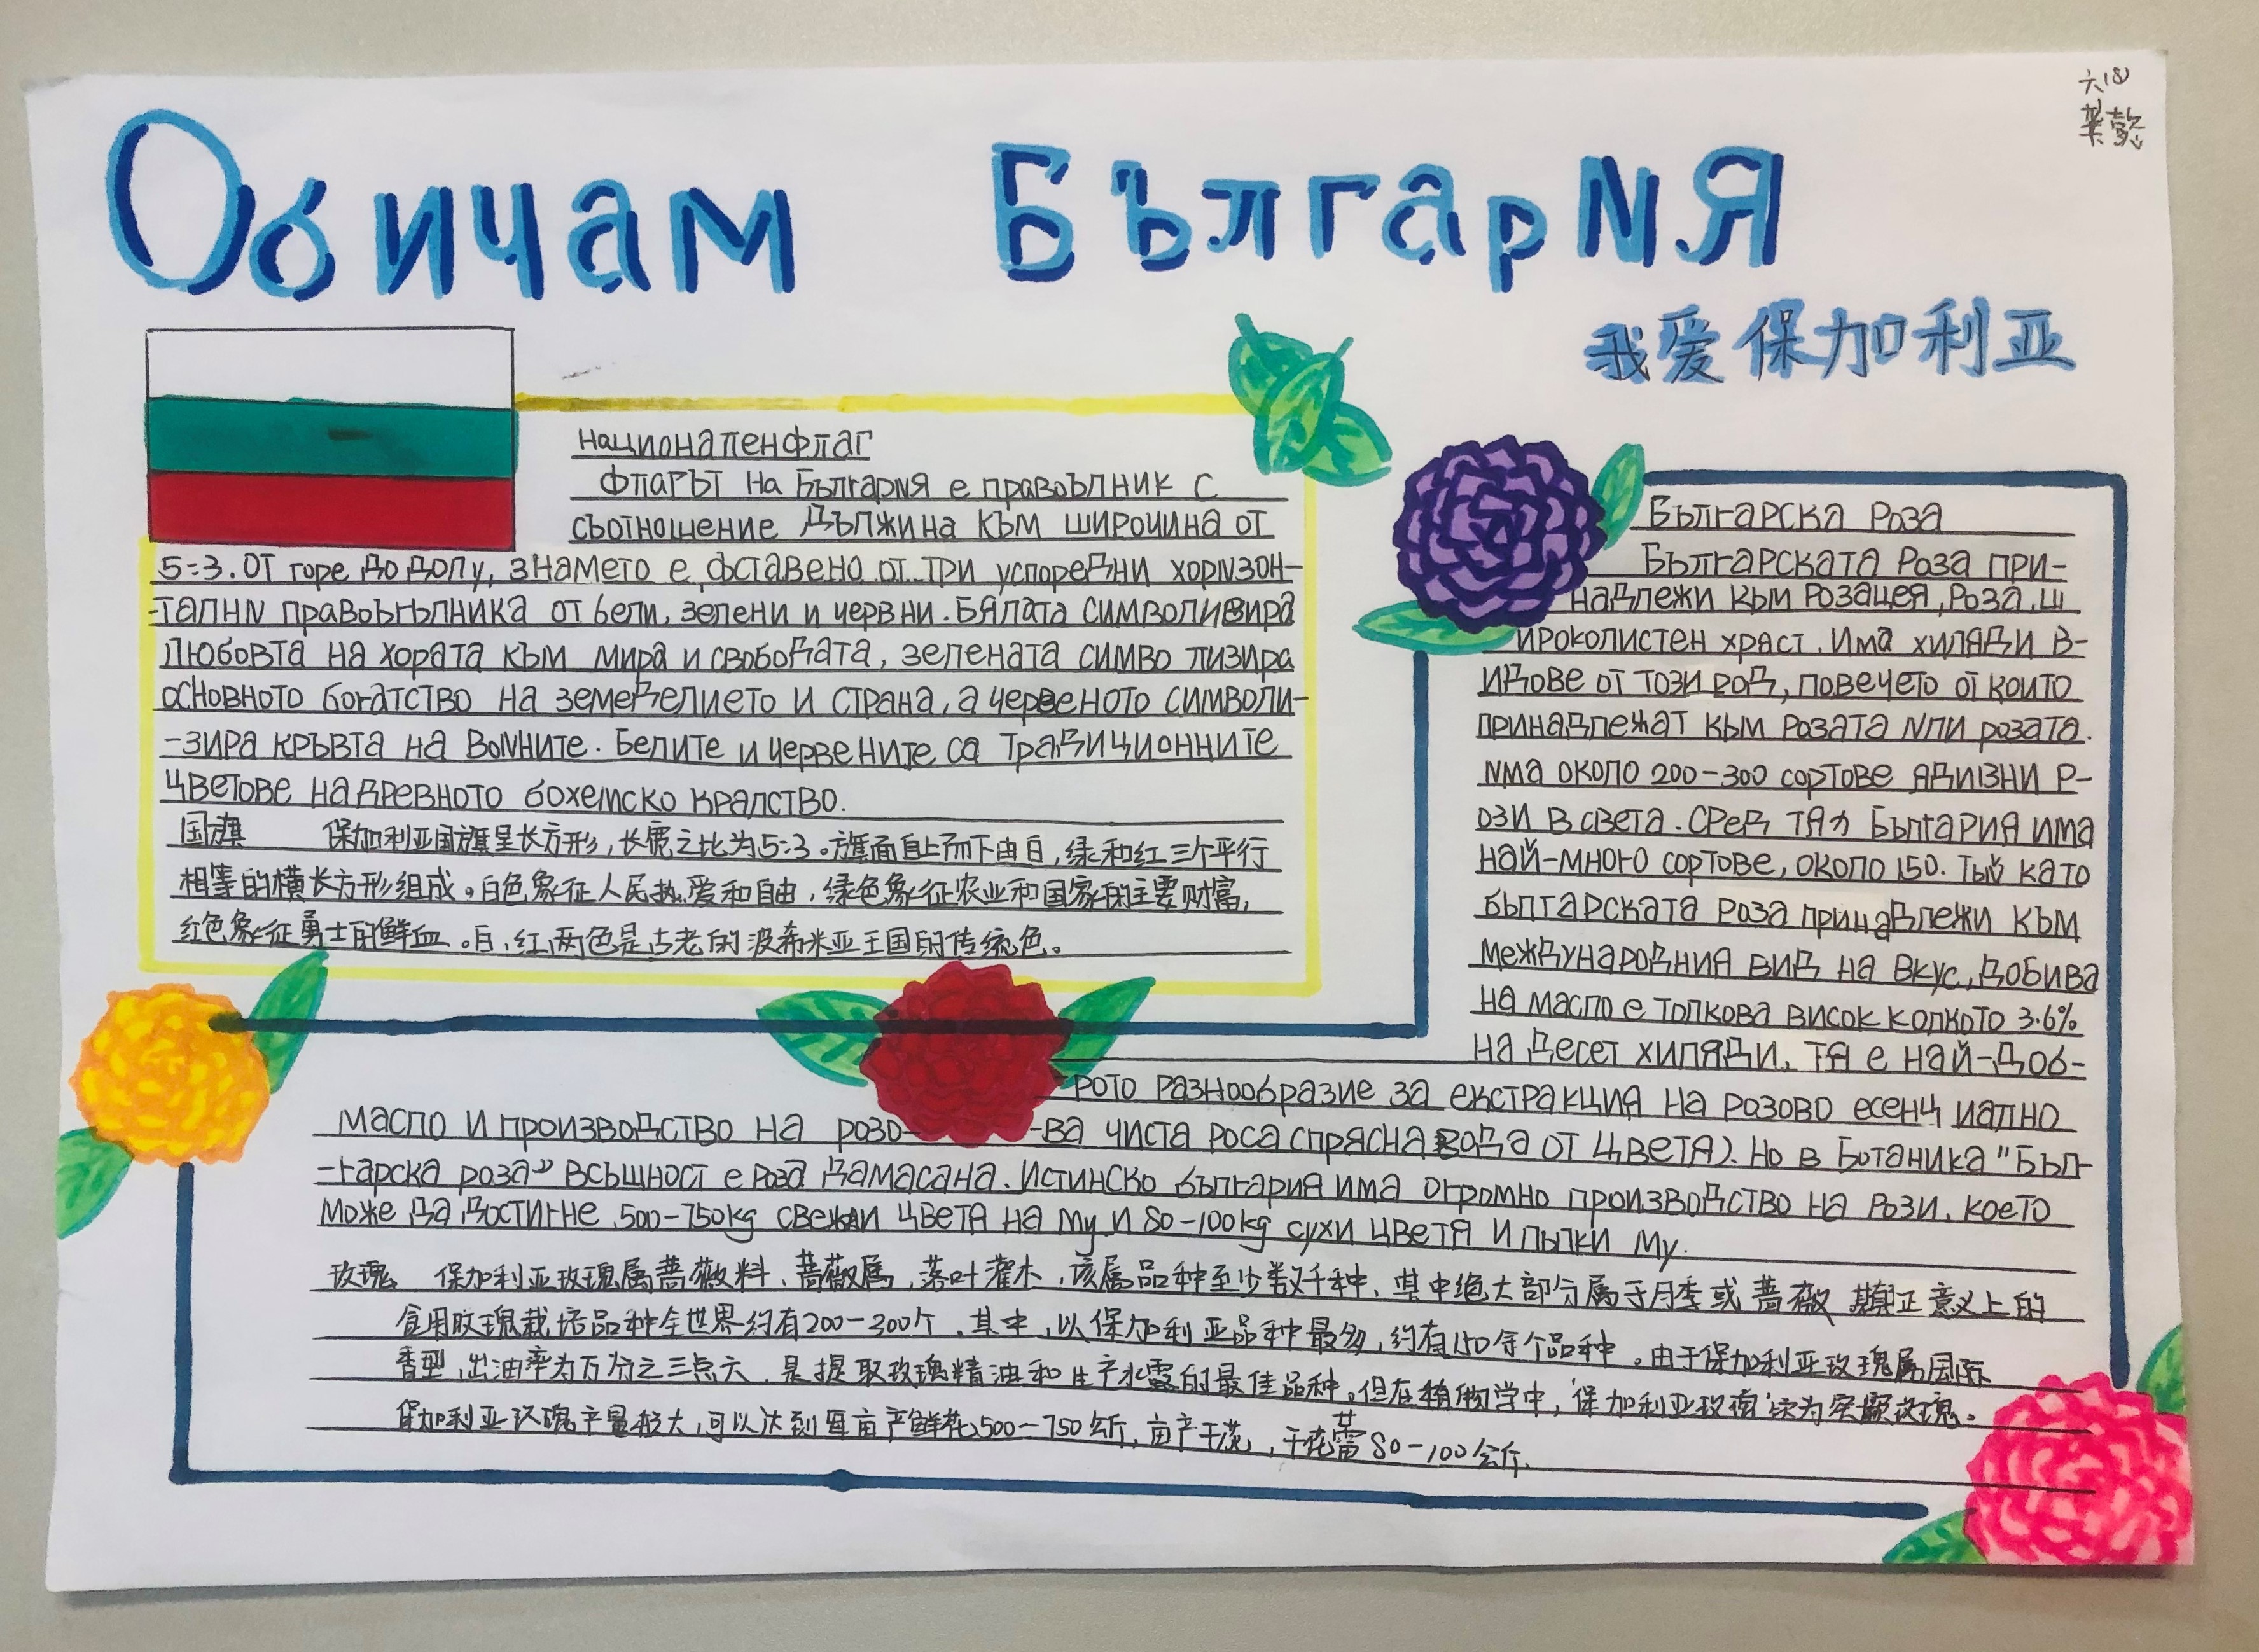 六(8)
葉懿
Обичам България
我爱保加利亚
Националенфлаг
Флагът на България е правоъълник с
съотношение Дължина към широчина от
5:3. От горе до долу, знамето е фставено от три успоредни хоризон-
-тални правоъгълника от бели, зелени и червни. Бялата символивира
Любовта на хората към мира и свободата, зелената симво лизира
основното богатство на земеделието и страна, а червеното символи-
-зира кръвта на воините. Белите и червените са традиционните
цветове на древното бохемско кралство.
国旗 保加利亚国旗呈长方形,长宽之比为5:3。旗面自上而下由白,绿和红三个平行
相等的横长方形组成。白色象征人民热爱和自由,绿色象征农业和国家的主要财富,
红色象征勇士的鲜血。白、红,两色是古老的波希米亚王国的传统色。
Българска Роза
Българската Роза при-
надлежи към розацея, Роза, ш
ироколистен храст. Има хиляди в-
идове от този род, повечето от които
принадлежат към розата или розата.
има около 200-300 сортове ядивзни р-
ози в света. Сред тях България има
най-много сортове, около 150. Тъй като
българската роза принадлежи към
международния вид на вкус, добива
на масло е толкова висок колкото 3.6%
на десет хиляди, тя е най-доб-
-рото разнообразие за екстракция на розово есенц иално
масло и производство на розо- -ва чиста роса спрясна вода от цветя). Но в Ботаника "Бъл-
-гарска роза" всъщност е роза Дамасана. Истинско българия има огромно производство на рози, което
може да достигне 500-750kg свежи цветя на му и 80-100kg сухи цветя и пъпки му.
玫瑰 保加利亚玫瑰属蔷薇料、蔷薇属,落叶灌木,该属品种至少数千种,其中绝大部分属于月季或蔷薇 真正意义上的
食用玫瑰栽培品种全世界约有200-300个,其中,以保加利亚品种最多,约有150余个品种。由于保加利亚玫瑰属国际
香型,出油率为万分之三点六,是提取玫瑰精油和生产水露的最佳品种。但在植物学中,'保加利亚玫瑰'实为突厥玫瑰。
保加利亚玫瑰产量较大,可以达到每亩产鲜花500-750公斤,亩产干花,干花蕾80-100公斤.